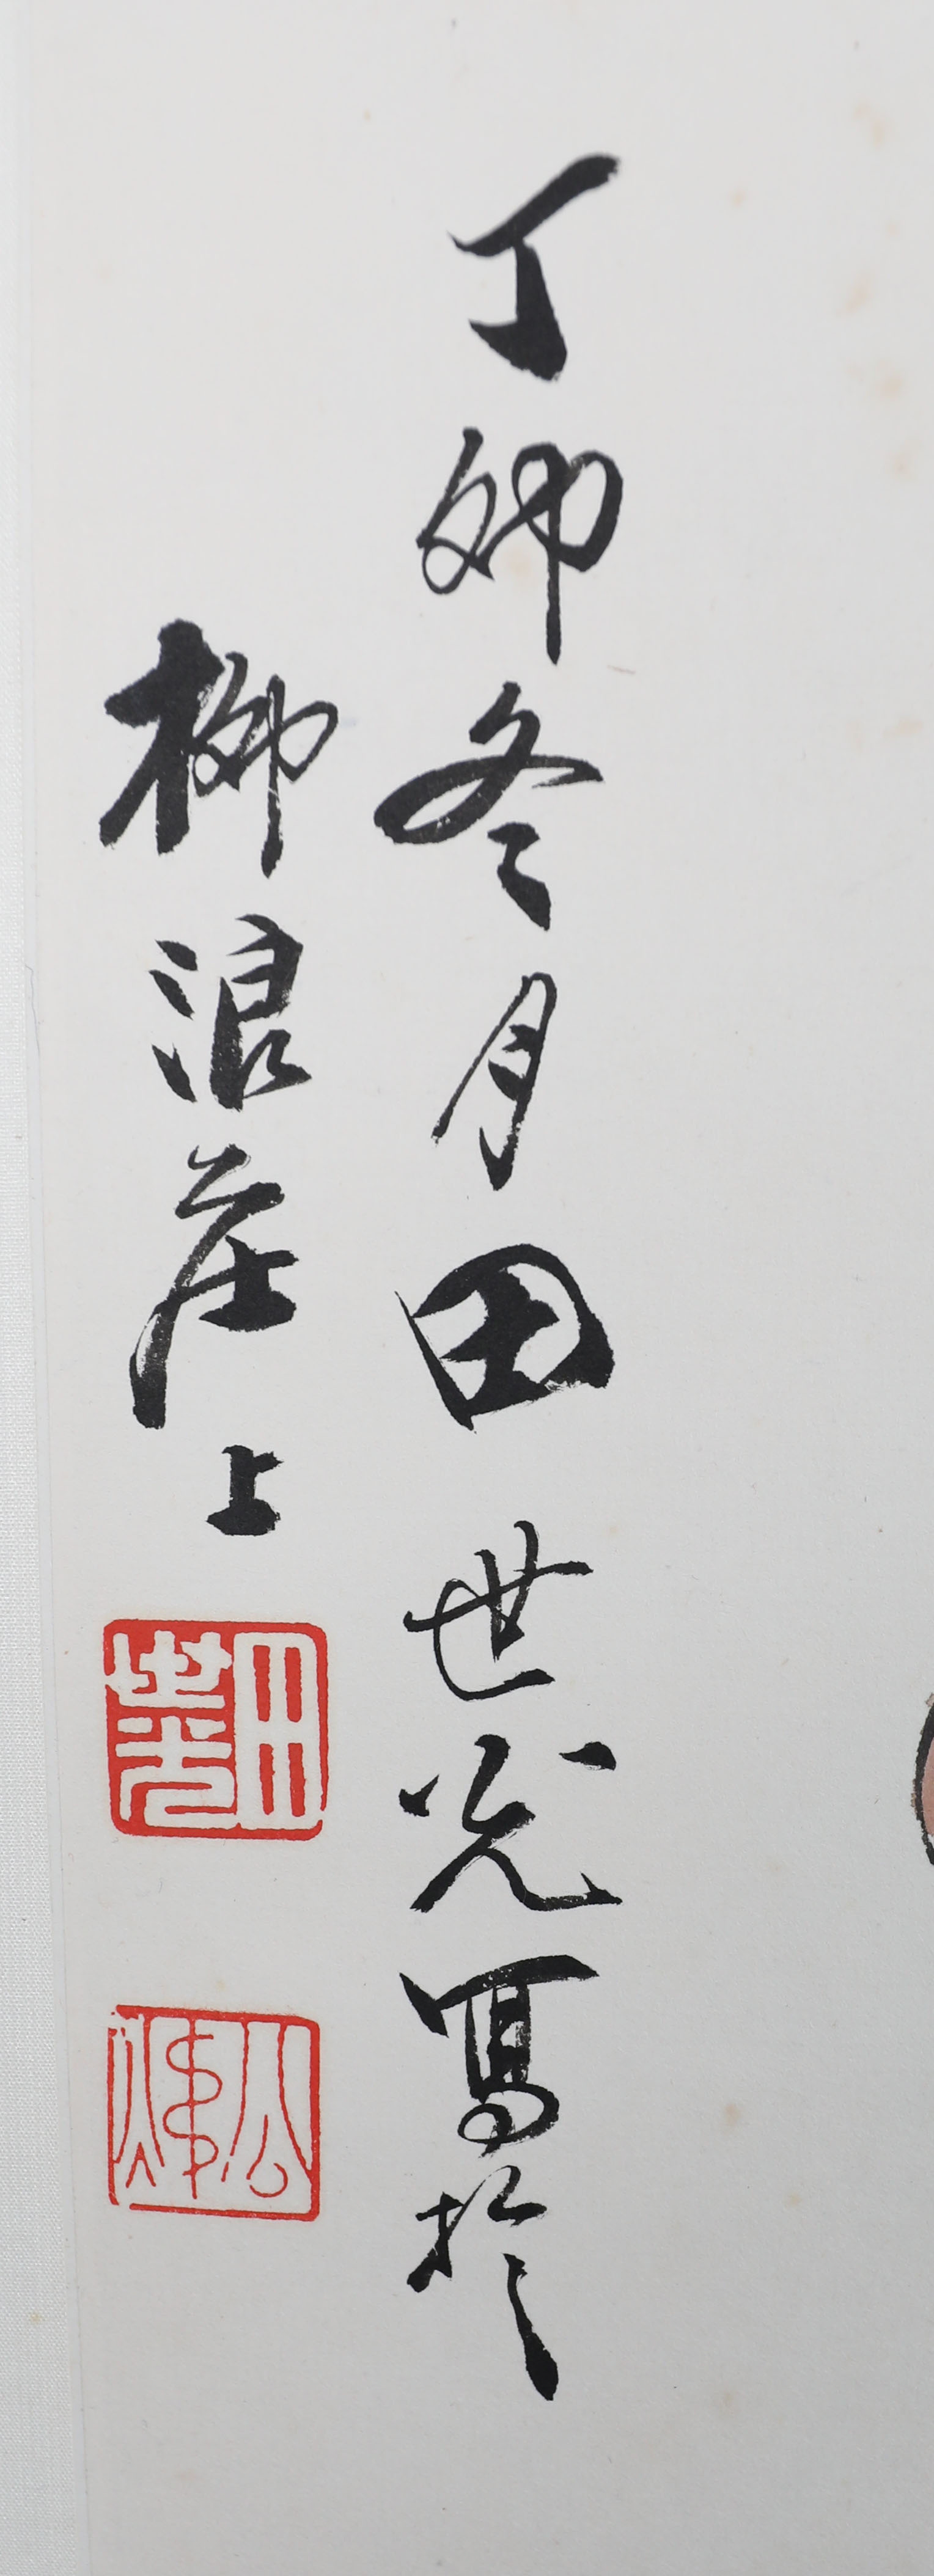 丁卯冬月田世光寫於
柳浪庄上
田世光
公煒